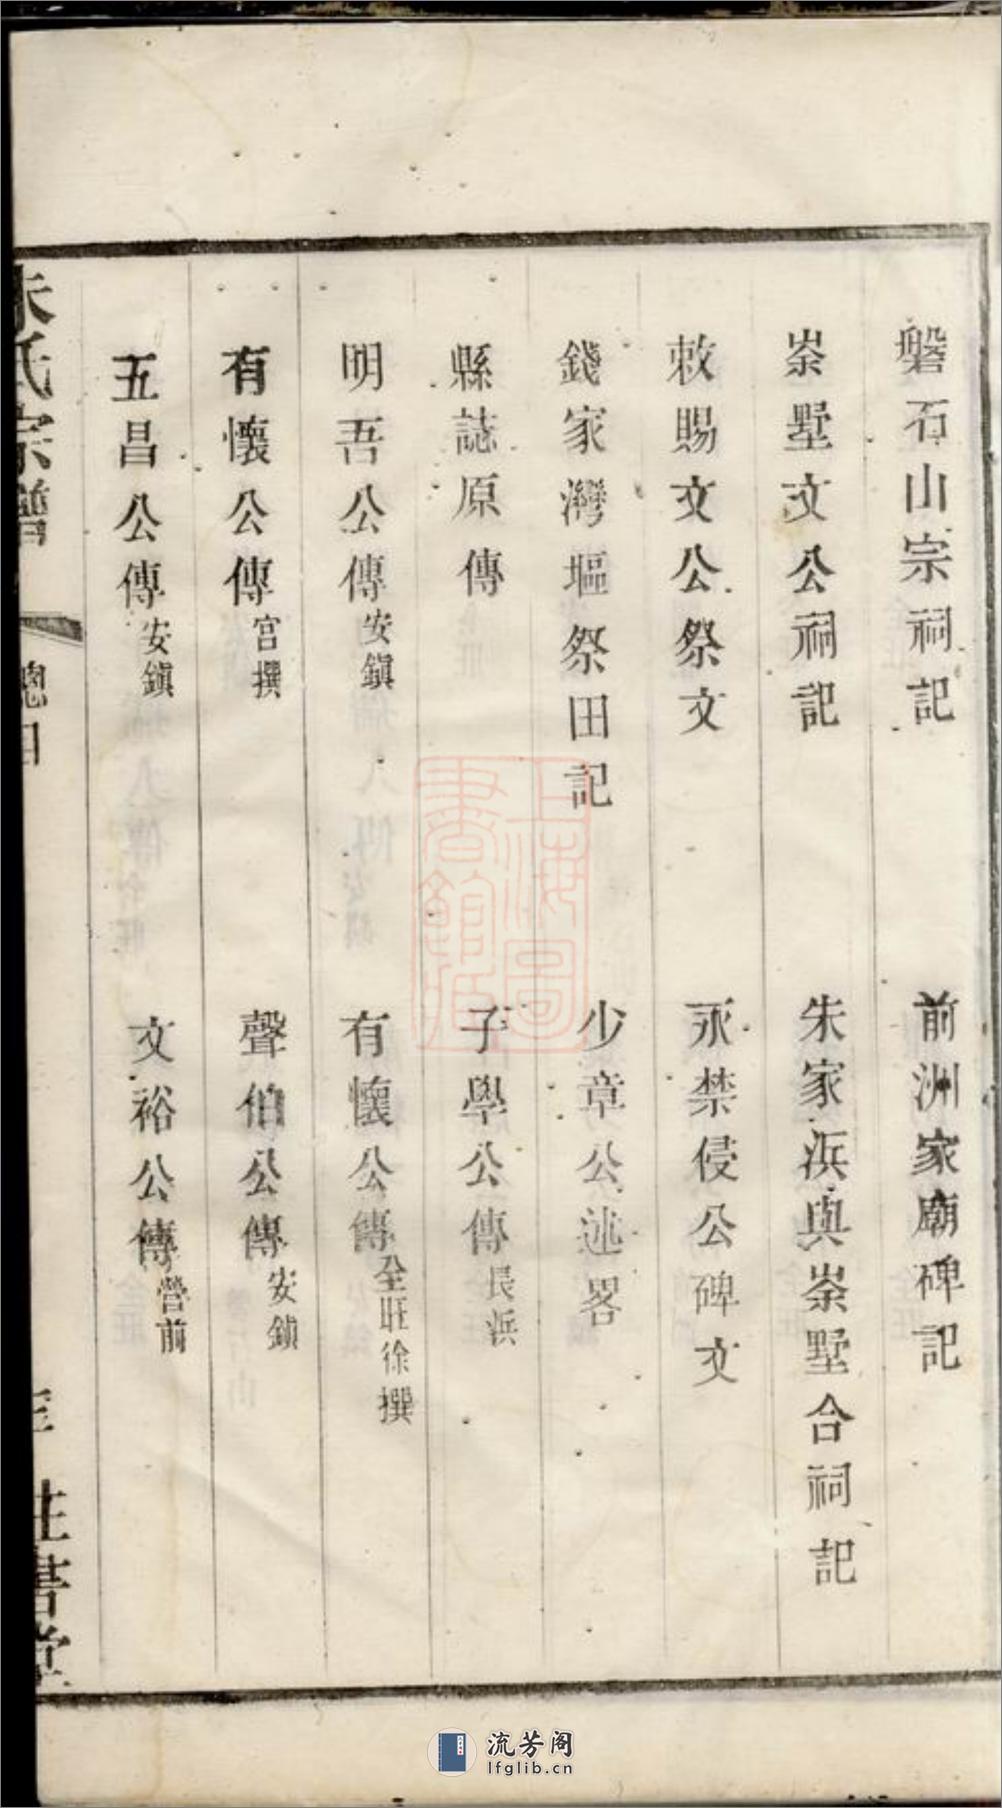 磐石山宗祠記
前洲家廟碑記
崇墅文公祠記
朱家浜與崇墅合祠記
敕賜文公祭文
永禁侵公碑文
錢家灣堰祭田記
少章公述畧
縣誌原傳
子學公傳 長浜
明吾公傳 安鎭
有懷公傳 全旺徐撰
有懷公傳 宫撰
聲伯公傳 安鎭
五昌公傳 安鎭
文裕公傳 營前
朱氏宗譜
總目
註書堂
上海圖書館藏
流芳阁
lfglib.cn